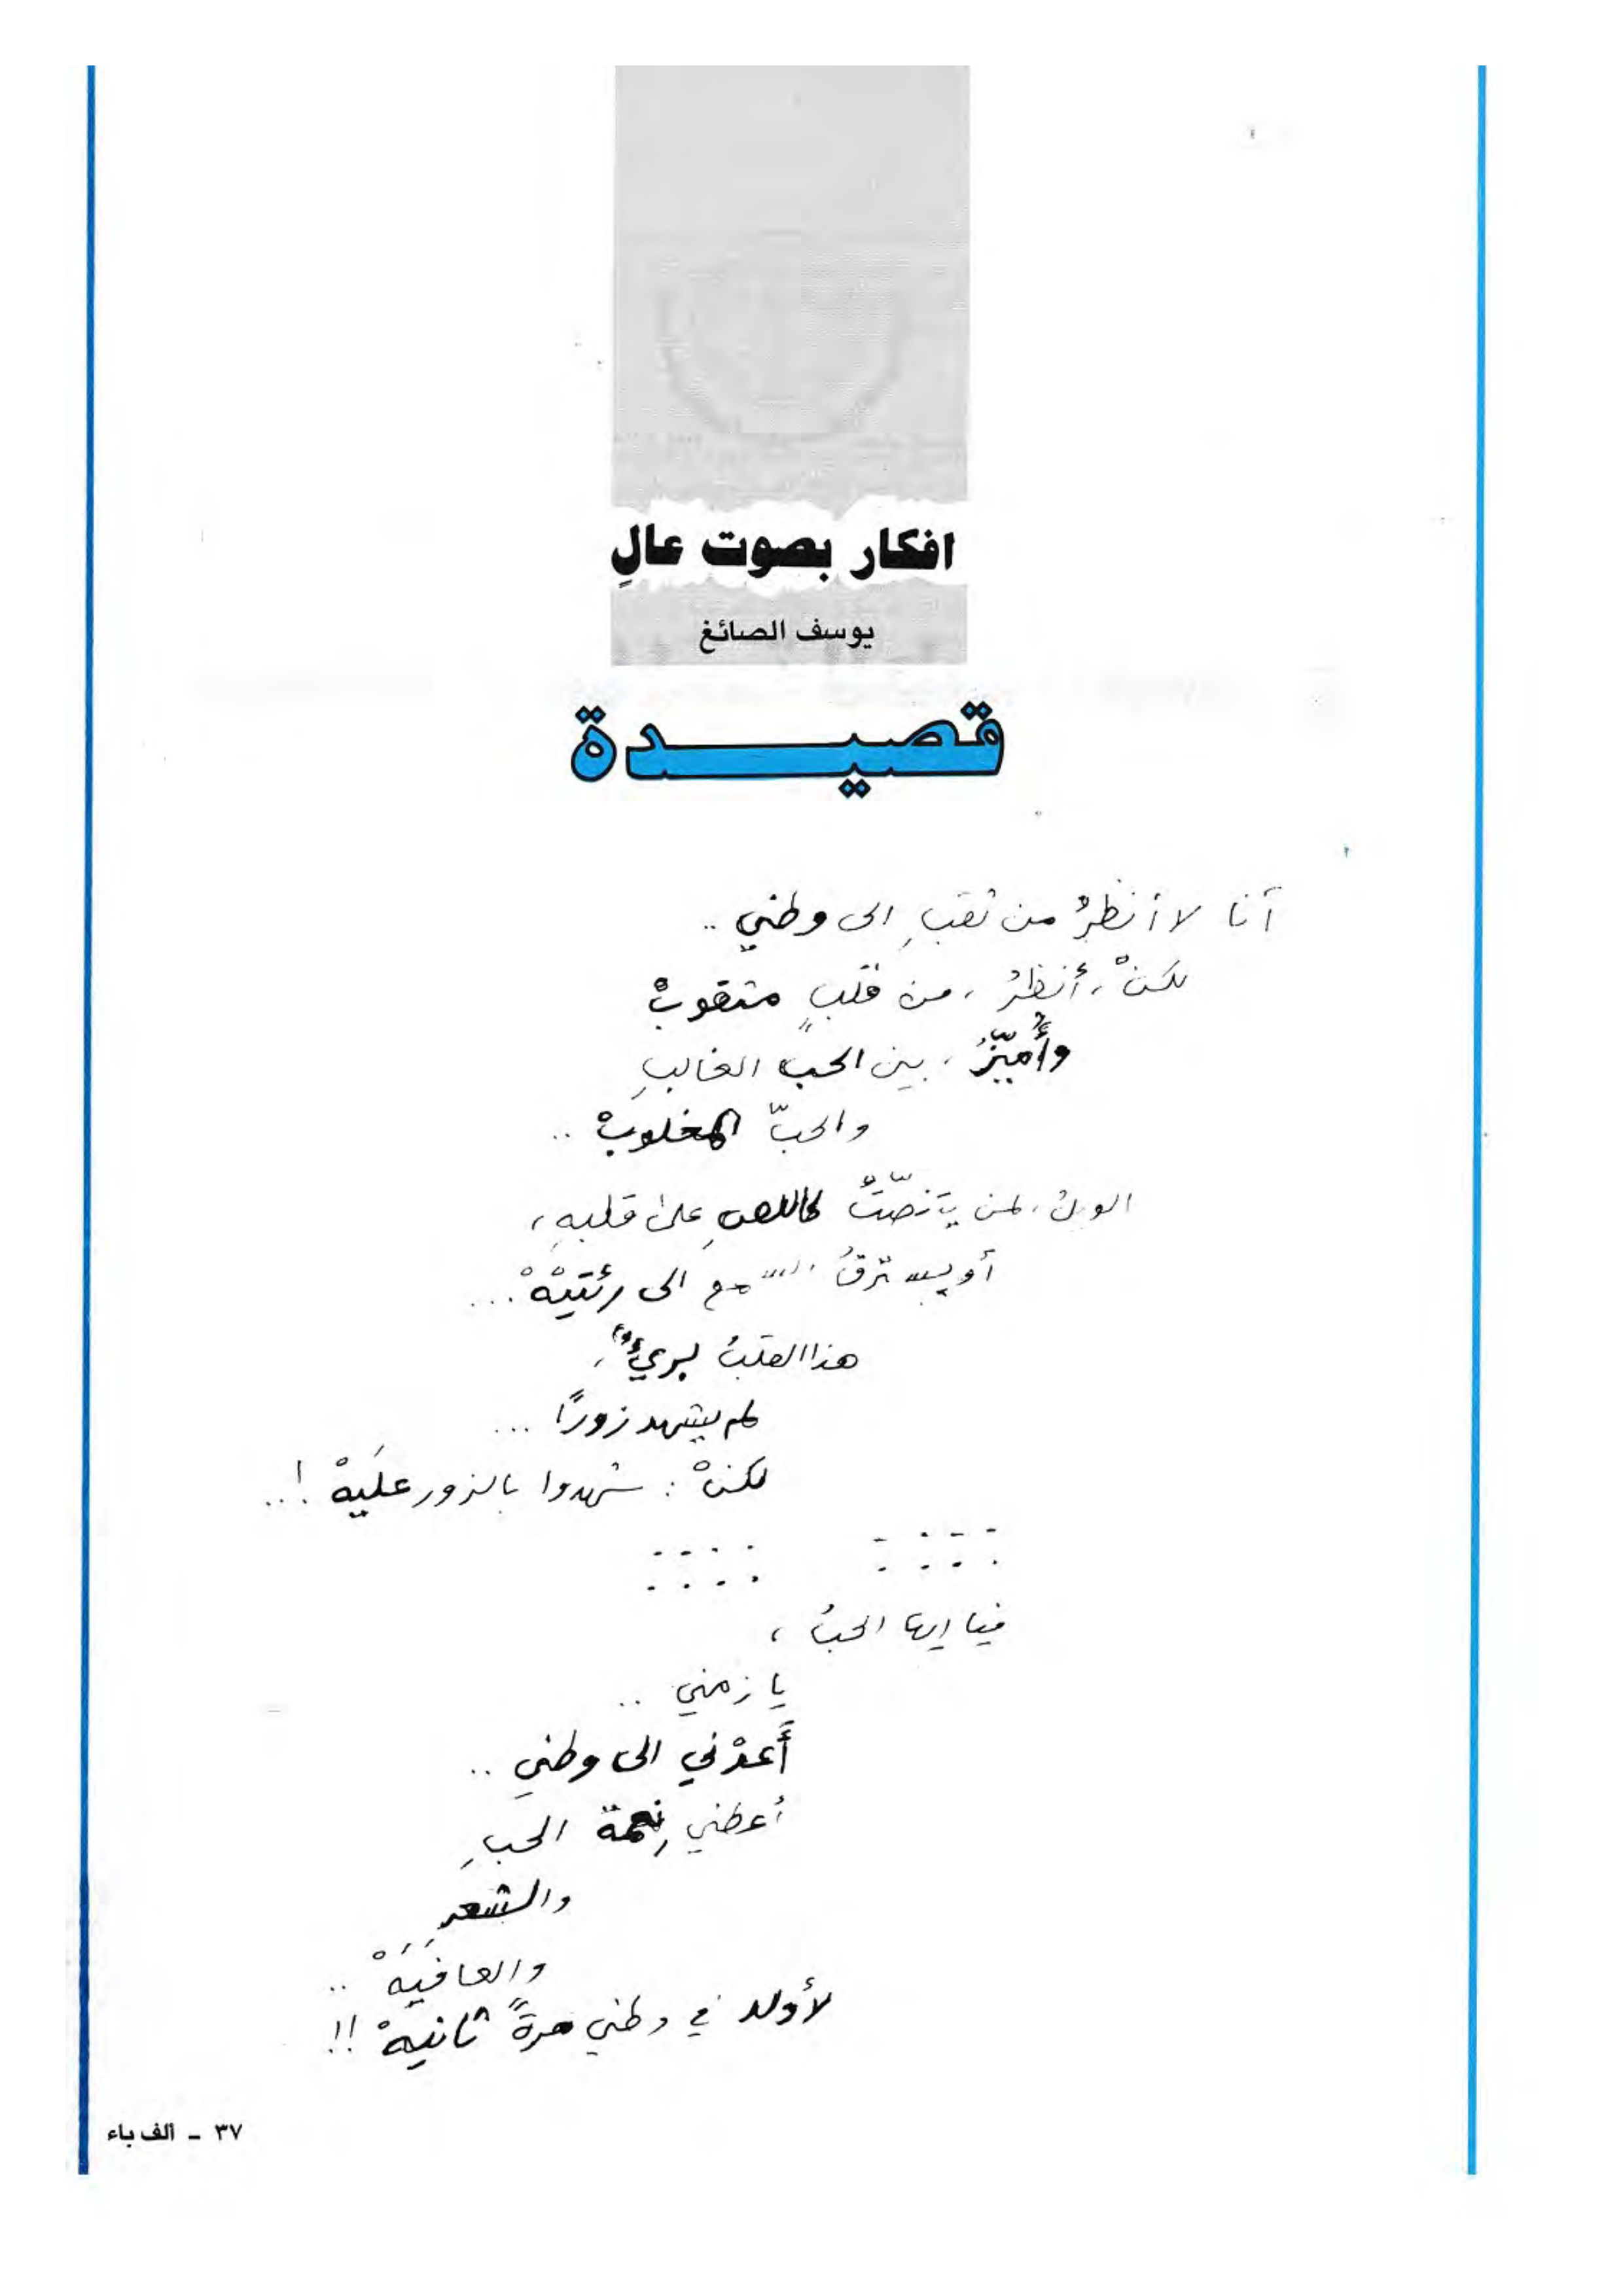 افكار بصوت عالِ
يوسف الصائغ
قصيدة
أنا لا أنظرُ من ثقبٍ الى وطني ..
لكنْ ، أنظرُ ، من قلبٍ مثقوبْ
وأُميّزُ ، بين الحب الغالبِ
والحبّ المغلوبْ ..
الويلُ ، لمن يتنصّتُ كاللصِ على قلبهِ ،
أو يسترقُ السمع الى رئتيهْ ...
هذا القلبُ بريءٌ ،
لم يشهد زوراً ...
لكنْ : شهدوا بالزور علَيهْ ! ...
فيا ايها الحبُ ،
يا زمني ..
أَعدْني الى وطني ..
أعطني نِعمة الحبِ
والشعرِ
والعافِيَهْ ..
لأولد في وطني مرةً ثانيهْ !!
٣٧ - الف باء